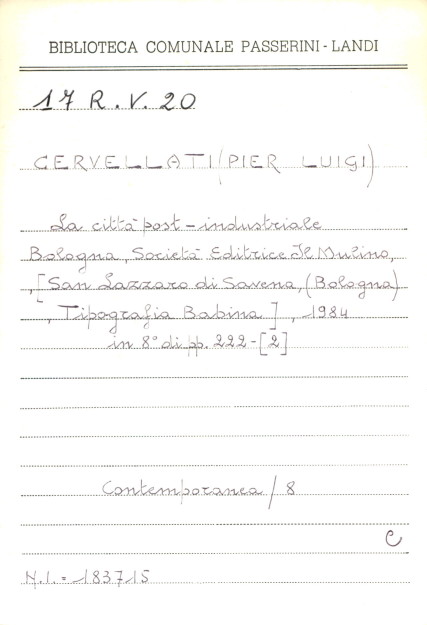 BIBLIOTECA COMUNALE PASSERINI - LANDI
17 R. V. 20
CERVELLATI (PIER LUIGI)
La città post-industriale
Bologna, Società Editrice Il Mulino,
, [San Lazzaro di Savena, (Bologna)
, Tipografia Babina ] , 1984
in 8° di pp. 222-[2]
Contemporanea / 8
C
N.I. = 183715